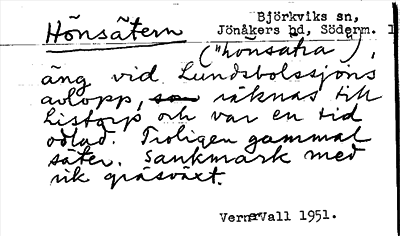 Björkviks sn,
Hönsätern Jönåkers hd, Söderm. 1
("hönsätra"),
äng vid Lundsbolssjöns
avlopp, räknas till
Listorp och var en tid
odlad. Troligen gammal
säter. Sankmark med
rik gräsväxt.
Verner Wall 1951.